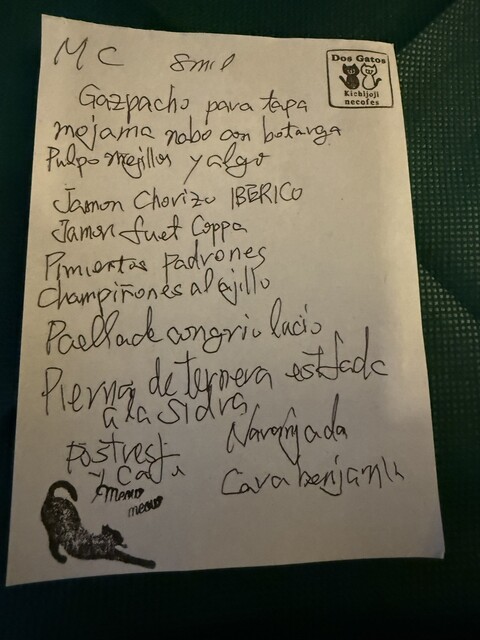 MC 8mil
Dos Gatos
Kichijoji
necofes
Gazpacho para tapa
mojama nabo con botarga
Pulpo mejillos y algo
Jamon Chorizo IBERICO
Jamon fuet Coppa
Pimientos Padrones
Champiñones al ajillo
Paella de congrio lucio
Pierna de ternera estofade
a la Sidra
Postres
y Cafe
Naranjada
Cava benjamin
Meow
meow